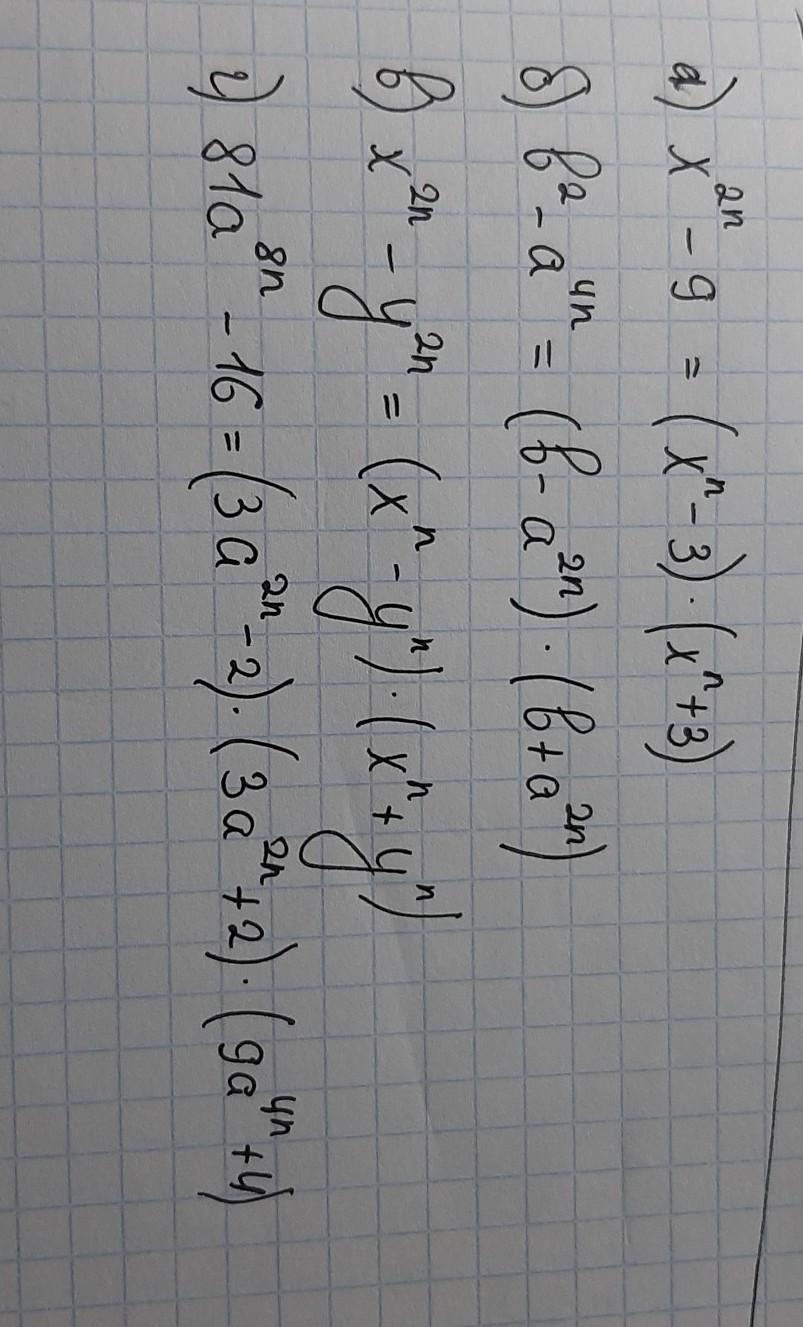 а) x^{2n} - 9 = (x^n - 3) · (x^n + 3)
б) b^2 - a^{4n} = (b - a^{2n}) · (b + a^{2n})
в) x^{2n} - y^{2n} = (x^n - y^n) · (x^n + y^n)
г) 81a^{8n} - 16 = (3a^{2n} - 2) · (3a^{2n} + 2) · (9a^{4n} + 4)